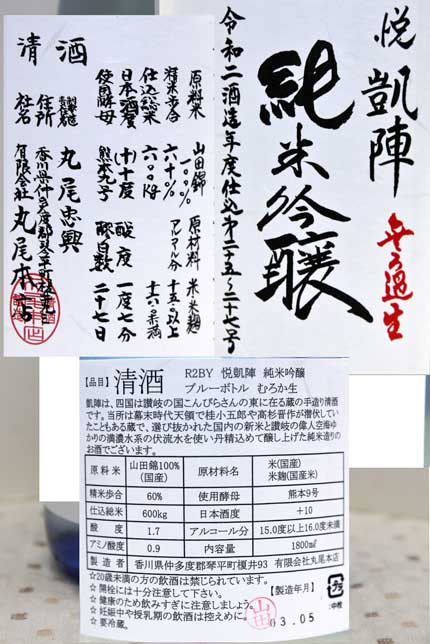 悦 凱陣
純米吟醸
無ろ過生
令和二酒造年度仕込第二十五〜二十七号
清酒
原料米 山田錦 一〇〇% 原材料 米 米麹
精米歩合 六十% アルコール分 十五以上 十六未満
仕込総米 六〇〇kg
日本酒度 (+)十度 酸度 一度七分
使用酵母 熊本九号 醪日数 二十七日
製造 丸尾忠興
住所 香川県仲多度郡琴平町榎井九三
社名 有限会社 丸尾本店
【品目】 清酒 R2BY 悦凱陣 純米吟醸
ブルーボトル むろか生
凱陣は、四国は讃岐の国こんぴらさんの東に在る蔵の手造り清酒
です。当所は幕末時代天領で桂小五郎や高杉晋作が潜伏してい
たこともある蔵で、選び抜かれた国内の新米と讃岐の偉人空海ゆ
かりの満濃水系の伏流水を使い丹精込めて醸し上げた純米造りの
お酒でございます。
原料米 山田錦100% (国産) 原材料名 米(国産) 米麹(国産米)
精米歩合 60% 使用酵母 熊本9号
仕込総米 600kg 日本酒度 +10
酸度 1.7 アルコール分 15.0度以上16.0度未満
アミノ酸度 0.9 内容量 1800㎖
製造者 香川県仲多度郡琴平町榎井93 有限会社丸尾本店
☆20歳未満の方の飲酒は禁じられています。
☆開栓には十分注意して下さい。
☆健康のため飲みすぎに注意しましょう。
☆妊娠中や授乳期の飲酒は控えめに。
☆要冷蔵。
【製造年月】
03.05
山田
プラ